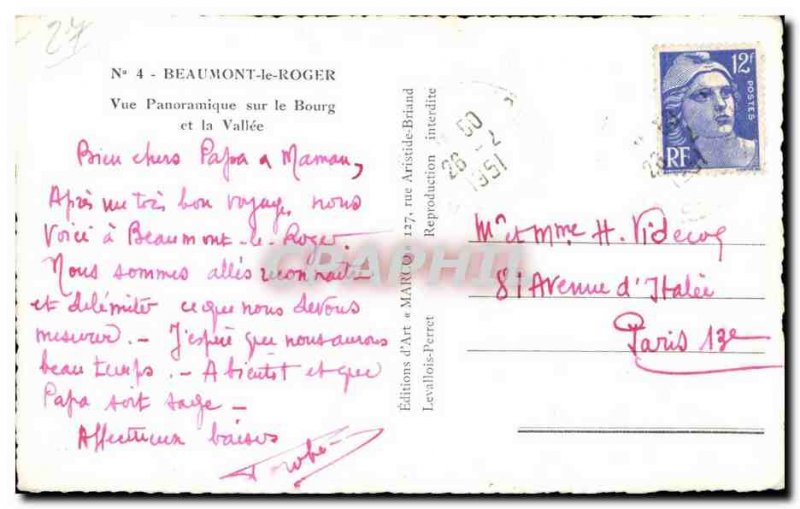 27
N° 4 - BEAUMONT-le-ROGER
Vue Panoramique sur le Bourg
et la Vallée
Bien chers Papa a Maman,
Après un très bon voyage, nous
Voici à Beaumont-le-Roger.
Nous sommes allés reconnaitre
et délimiter ce que nous devons
mesurer. - J'espère que nous aurons
beau temps. - A bientôt et que
Papa soit sage -
Affectueux baisers
Éditions d'Art « MARCO » 127, rue Aristide-Briand
Levallois-Perret Reproduction interdite
26 - 2
1951
12F
POSTES
RF
Mr et Mme H. Videcoq
81 Avenue d'Italie
Paris 13e